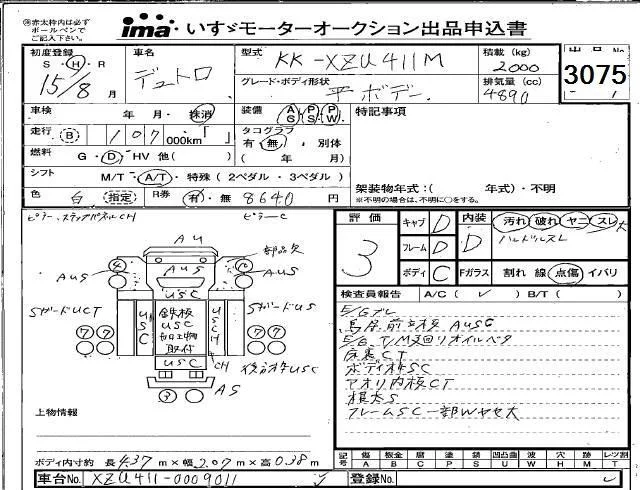 ㊟赤太枠内は必ず
ボールペンで
ご記入下さい。
ima いすゞモーターオークション出品申込書
初度登録
S・H・R
15/8月
車名
デュトロ
型式
KK-XZU411M
積載 (kg)
2000
グレード・ボディ形状
平ボデー
排気量 (cc)
4890
3075
車検
年 月・抹消
装備 AS PS PW
特記事項
走行 B 107,000km
タコグラフ
有・無・別体
( 年 月)
燃料
G・D・HV 他( )
シフト
M/T・A/T・特殊(2ペダル・3ペダル)
架装物年式:( 年式)・不明
※不明の場合は、不明に〇をする。
色 白 指定
R券 有・無 8640円
ピラー、ステップパネルCH
ピラーC
評価
3
キャブ D
フレーム D
ボディ C
内装 D
汚れ 破れ ヤニ スレ 大
ハンドルスレ
Fガラス 割れ 線 点傷 イバリ
検査員報告 A/C( ✓ ) B/T( )
AU
部品欠
AUS
AUS
AUS
USC
SガードUCT
SガードUS
USC
鉄板
USC
加工物
取付
USCH
USC
CH
AS
4
7 7
7 7
3
E/Gブレ
E/G T/M廻リオイルベタ
床裏CT
ボディ枠SC
アオリ内板CT
根太S
フレームSC一部Wヤセ大
上物情報
ボディ内寸 約 長 4.37 m × 幅 2.07 m × 高 0.38 m
記号 傷A 板金B 腐C 塗P 錆S 凹凸曲U 波W 穴H 跡M レツ割T
車台No. XZU411-0009011
登録No.